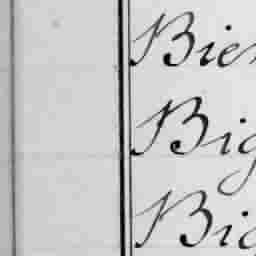 Bien
Big
Big